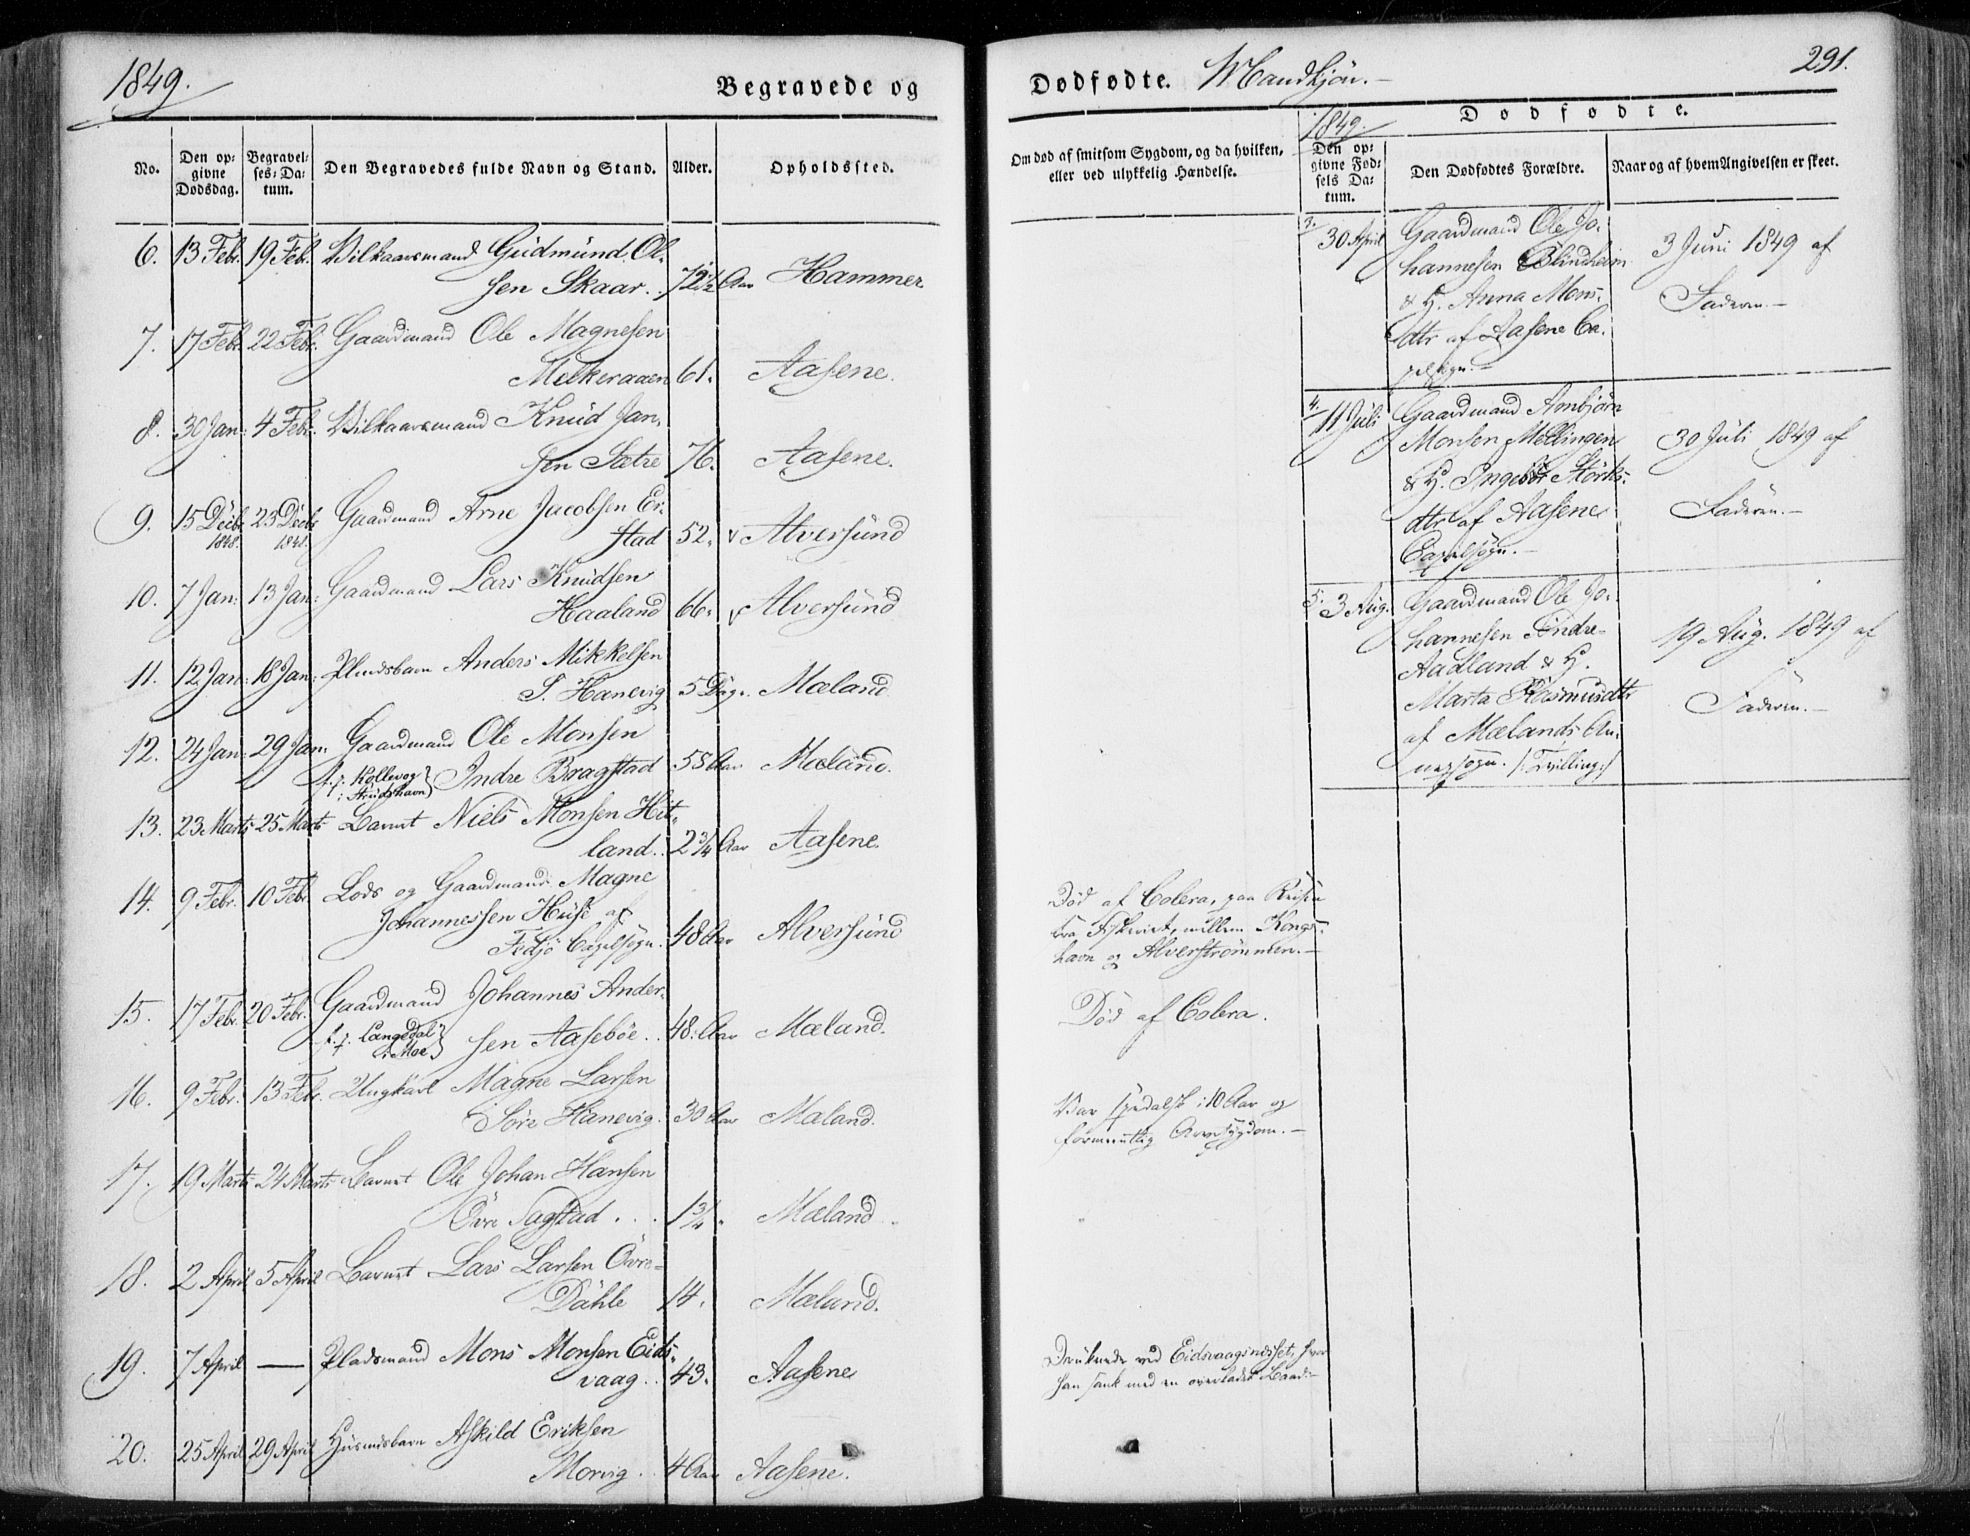 1849.
Begravede og
Dødfødte. Mandkjön.
291.
No.
Den opgivne Dødsdag.
Begravelses-Datum.
Den Begravedes fulde Navn og Stand.
Alder.
Opholdssted.
Om død af smitsom Sygdom, og da hvilken, eller ved ulykkelig Hændelse.
1849.
Dødfødte.
Den opgivne Fødsels Datum.
Den Dødfødtes Forældre.
Naar og af hvem Angivelsen er skeet.
6. 13 Febr. 19 Febr. Vilkaarsmand Gudmund Ol-
sen Skaar. 72½ Aar Hammer
7. 17 Febr. 22 Febr. Gaardmand Ole Magnesen
Melkeraaen 61. Aasene.
8. 30 Jan: 4 Febr. Vilkaarsmand Knud Jan-
sen Sætre 76. Aasene.
9. 15 Decbr 1848. 23 Decbr 1848. Gaardmand Arne Jacobsen Er-
stad 52. Alversund
10. 7 Jan: 13 Jan: Gaardmand Lars Knudsen
Haaland 66. Alversund
11. 12 Jan: 18 Jan: Anders Mikkelsen
S. Hanevig 5 Dage. Mæland
12. 24 Jan: 29 Jan: Gaardmand Ole Monsen
Indre Bragstad 55 Aar Mæland.
13. 23 Marts 25 Marts Barnet Niels Monsen Hit-
land. 2¾ Aar Aasene.
14. 9 Febr. 10 Febr. Lods og Gaardmand Magne
Johannessen Huse af
Fedjö Capelsogn. 48 Aar Alversund
Död af Colera, paa Reisen
fra Fiskeriet, mellem Kongs-
havn og Alverströmmen.
15. 17 Febr. 20 Febr. Gaardmand Johannes Ander-
f. p. Langedal i Moe sen Aaseböe. 48. Aar Mæland.
Död af Colera.
16. 9 Febr. 13 Febr. Ungkarl Magne Larsen
Söre Hanevig. 30 Aar Mæland.
Var spedalsk i 10 Aar og
formeentlig Arvesygdom.
17. 19 Marts 24 Marts Barnet Ole Johan Hansen
Övre Sagstad. 1¾. Mæland
18. 2 April 5 April Barnet Lars Larsen Övre-
Dahle 14. Mæland.
19. 7 April — Pladsmand Mons Monsen Eids-
vaag. 43. Aasene
Druknede ved Eidsvaagsnesset, hvor
han sank med en overladet Baad.
20. 25 April 29 April Huusmdsbarn Askild Eriksen
Morvig. 4 Aar Aasene.
3. 30 April Gaardmand Ole Jo-
hannesen Blindheim
& H. Anna Mons-
dtr af Aasene Ca-
pelsogn.
3 Juni 1849 af
Faderen.
4. 11 Juli Gaardmand Arnbjørn
Monsen Mellingen
& H. Ingebor Störks-
dtr af Aasene
Capelsogn.
30 Juli 1849 af
Faderen.
5. 3 Aug. Gaardmand Ole Jo-
hannesen Indre-
Aadland & H.
Marta Rasmusdtr
af Mælands An-
nexsogn. /: Tvilling:/
19 Aug. 1849 af
Faderen.